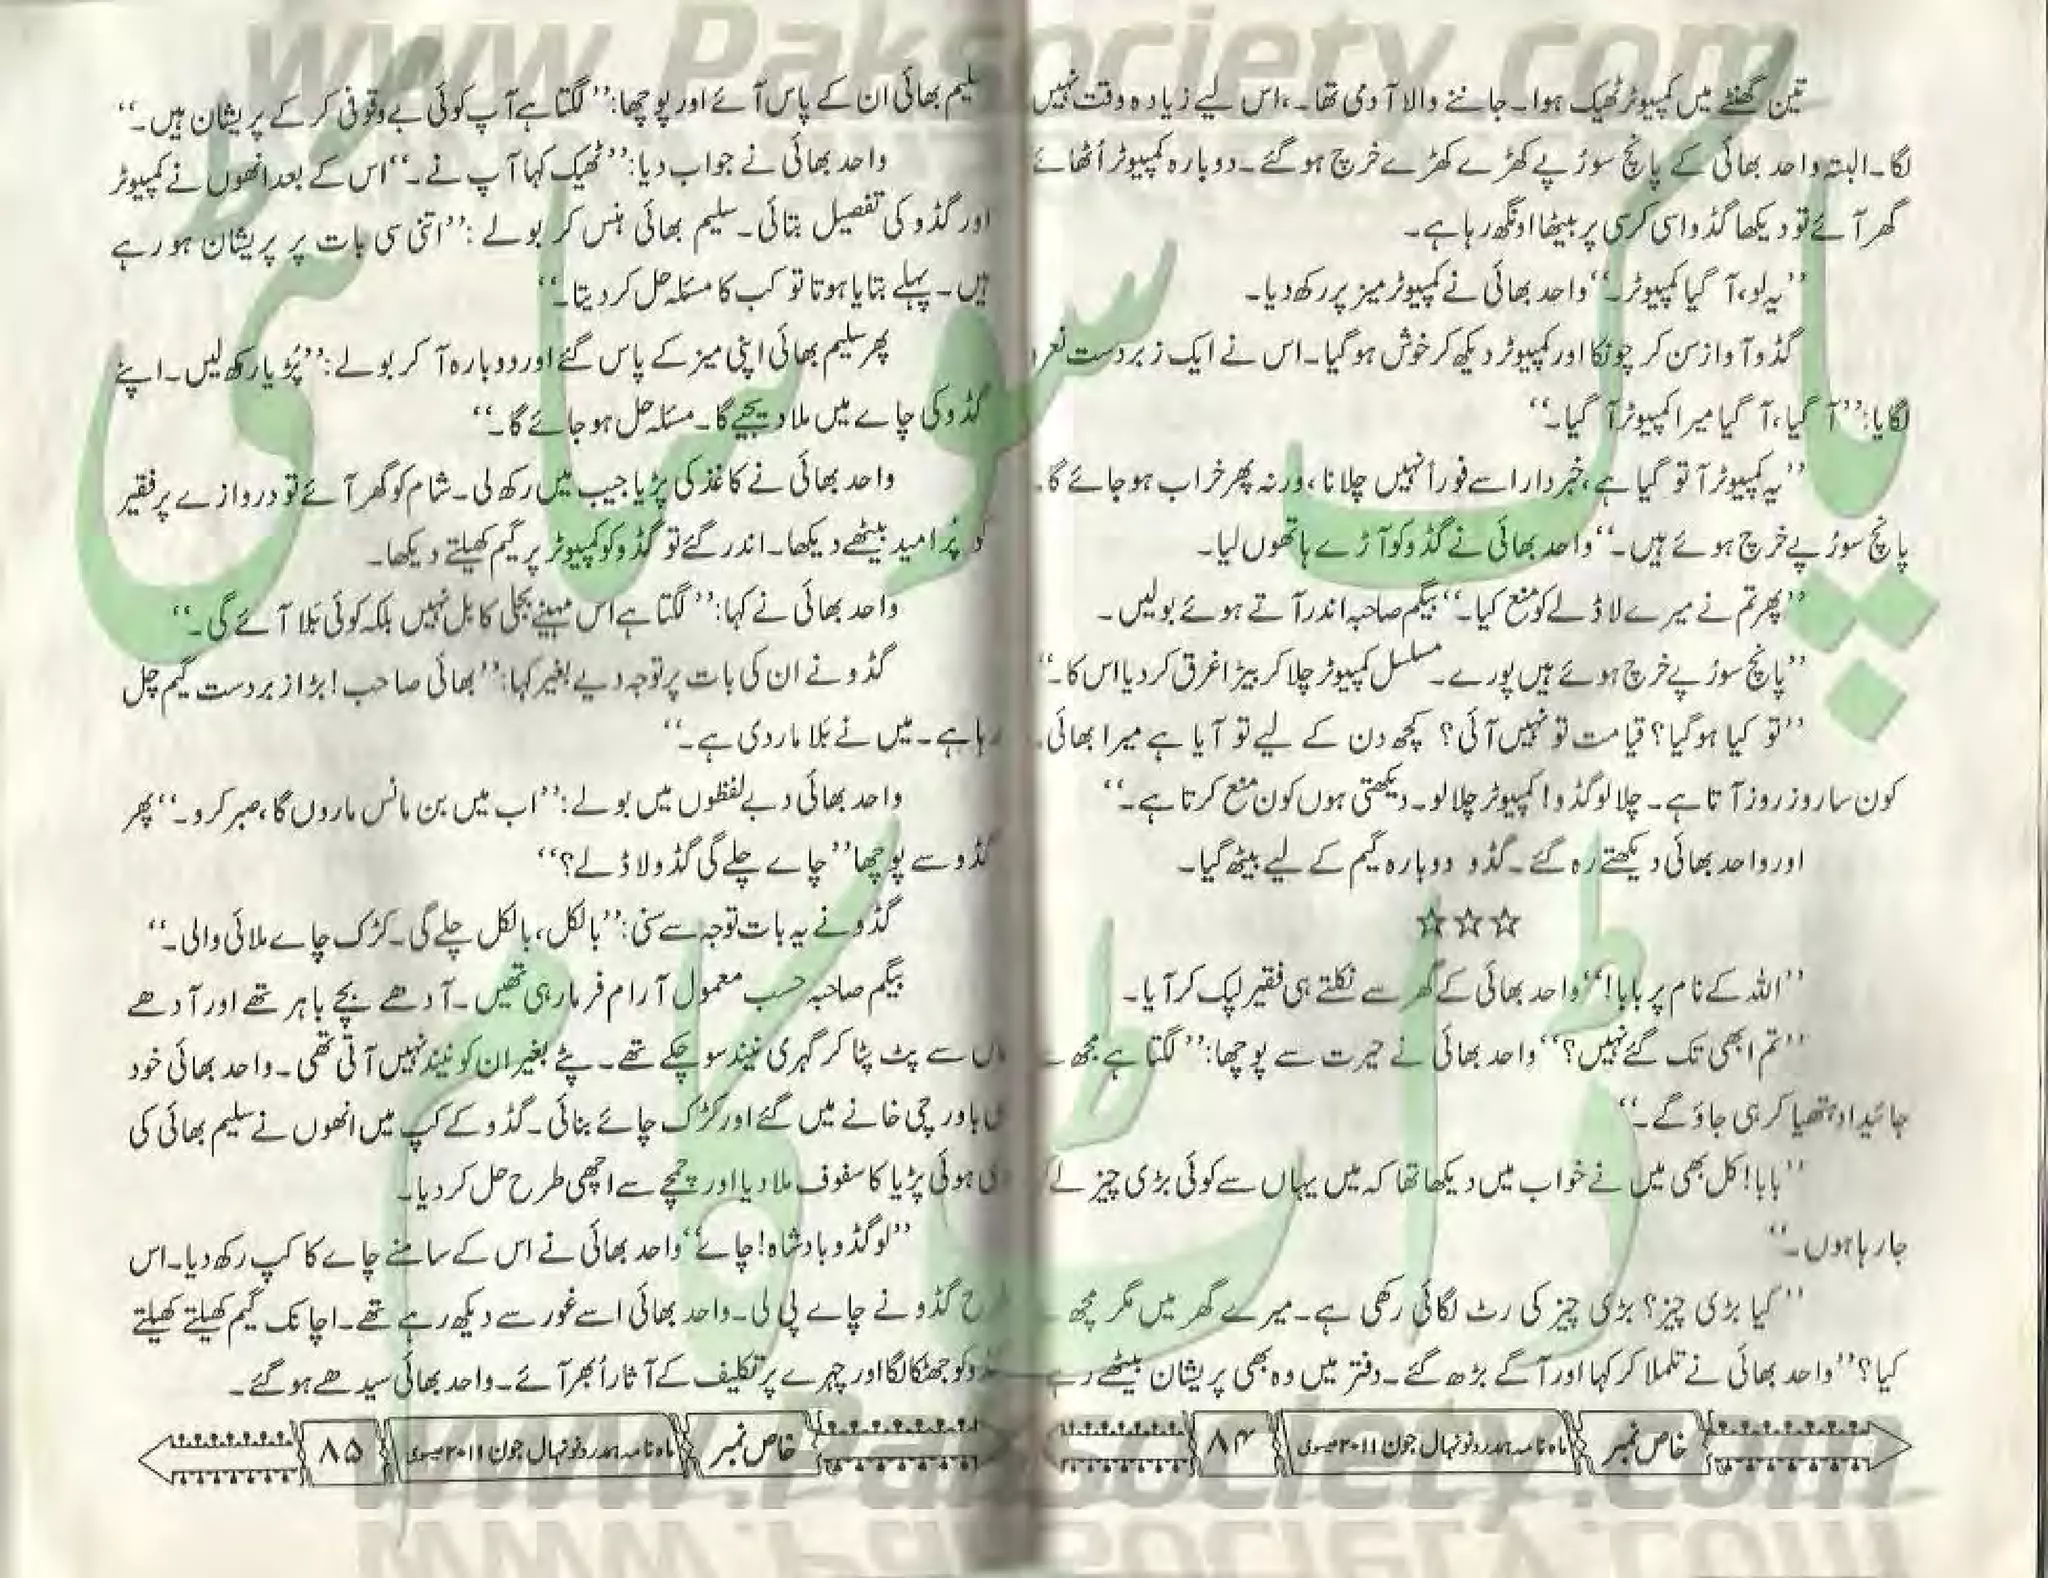 تین گھنٹے میں کمپیوٹر ٹھیک ہوا۔ جاننے والا آدمی تھا۔، اس لیے زیادہ وقت نہیں
لگا۔ البتہ واحد بھائی کے پانچ سو رُپے کھڑے کھڑے خرچ ہو گئے۔ دوبارہ کمپیوٹر اُٹھائے
گھر آئے تو دیکھا گڈو اسی کرسی پر بیٹھا اونگھ رہا ہے۔
’’یہ لو، آ گیا کمپیوٹر۔‘‘ واحد بھائی نے کمپیوٹر میز پر رکھ دیا۔
گڈو آواز سن کر چونکا اور کمپیوٹر دیکھ کر خوش ہو گیا۔ اس نے ایک زبردست نعرہ
لگایا: ’’آ گیا، آ گیا میرا کمپیوٹر آ گیا۔‘‘
’’یہ کمپیوٹر آ تو گیا ہے، خبردار اسے فوراً نہیں چلانا، ورنہ پھر خراب ہو جائے گا۔
پانچ سو رُپے خرچ ہوئے ہیں۔‘‘ واحد بھائی نے گڈو کو آڑے ہاتھوں لیا۔
’’پھر تم نے میرے لاڈلے کو منع کیا۔‘‘ بیگم صاحبہ اندر آتے ہوئے بولیں۔
’’پانچ سو رُپے خرچ ہوئے ہیں پورے۔ مسلسل کمپیوٹر چلا کر بیڑا غرق کر دیا اس کا۔‘‘
’’تو کیا ہو گیا؟ قیامت تو نہیں آئی؟ کچھ دن کے لیے تو آیا ہے میرا بھائی۔
کون سا روز روز آتا ہے۔ چلا لو گڈو! کمپیوٹر چلا لو۔ دیکھتی ہوں کون منع کرتا ہے۔‘‘
اور واحد بھائی دیکھتے رہ گئے۔ گڈو دوبارہ گیم کے لیے بیٹھ گیا۔
☆☆☆
’’اللہ کے نام پر بابا!‘‘ واحد بھائی کے گھر سے نکلتے ہی فقیر لپک کر آیا۔
’’تم ابھی تک گئے نہیں؟‘‘ واحد بھائی نے حیرت سے پوچھا: ’’لگتا ہے مجھ سے
جائیداد ہتھیا کر ہی جاؤ گے۔‘‘
’’بابا! کل بھی میں نے خواب میں دیکھا تھا کہ میں یہاں سے کوئی بڑی چیز لے کر
جا رہا ہوں۔‘‘
’’کیا بڑی چیز؟ بڑی چیز کی رٹ لگائی رکھی ہے۔ میرے گھر میں مگر مچھ ہے
کیا؟‘‘ واحد بھائی نے تلملا کر کہا اور آگے بڑھ گئے۔ دفتر میں وہ بھی پریشان بیٹھے رہے۔
خاص نمبر ماہ نامہ ہمدرد نونہال جون ۲۰۱۱ عیسوی ۸۴
سلیم بھائی ان کے پاس آئے اور پوچھا: ’’لگتا ہے آپ کوئی بے وقوفی کر کے پریشان ہیں۔‘‘
واحد بھائی نے جواب دیا: ’’ٹھیک کہا آپ نے۔‘‘ اس کے بعد انھوں نے کمپیوٹر
اور گڈو کی تفصیل بتائی۔ سلیم بھائی ہنس کر بولے: ’’اتنی سی بات پر پریشان ہو رہے
ہیں۔ پہلے بتایا ہوتا تو کب کا مسئلہ حل کر دیتا۔‘‘
پھر سلیم بھائی اپنی میز کے پاس گئے اور دوبارہ آ کر بولے: ’’پُڑیا رکھ لیں۔ اپنے
گڈو کی چاے میں ملا دیجیے گا۔ مسئلہ حل ہو جائے گا۔‘‘
واحد بھائی نے کاغذ کی پڑیا جیب میں رکھ لی۔ شام کو گھر آئے تو دروازے پر فقیر
کو پُر امید بیٹھے دیکھا۔ اندر گئے تو گڈو کو کمپیوٹر پر گیم کھیلتے دیکھا۔
واحد بھائی نے کہا: ’’لگتا ہے اس مہینے بجلی کا بل نہیں بلکہ کوئی بَلا آئے گی۔‘‘
گڈو نے ان کی بات پر توجہ دیے بغیر کہا: ’’بھائی صاحب! بڑا زبردست گیم چل
رہا ہے۔ میں نے بَلا مار دی ہے۔‘‘
واحد بھائی دبے لفظوں میں بولے: ’’اب میں بن مانس ماروں گا، صبر کرو۔‘‘ پھر
گڈو سے پوچھا ’’چاے چلے گی گڈو لاڈلے؟‘‘
گڈو نے یہ بات توجہ سے سنی: ’’بالکل، بالکل چلے گی۔ کڑک چاے ملائی والی۔‘‘
بیگم صاحبہ حسب معمول آرام فرما رہی تھیں۔ آدھے بچے باہر تھے اور آدھے
سے پٹ پٹا کر گہری نیند سو چکے تھے۔ پٹے بغیر ان کو نیند نہیں آتی تھی۔ واحد بھائی خود
ہی باورچی خانے میں گئے اور کڑک چائے بنائی۔ گڈو کے کپ میں انھوں نے سلیم بھائی کی
دی ہوئی پڑیا کا سفوف ملا دیا اور چمچے سے اچھی طرح حل کر دیا۔
’’لو گڈو بادشاہ! چاے‘‘ واحد بھائی نے اس کے سامنے چاے کا کپ رکھ دیا۔ اس
طرح گڈو نے چاے پی لی۔ واحد بھائی اسے غور سے دیکھ رہے تھے۔ اچانک گیم کھیلتے کھیلتے
گڈو کو جھٹکا لگا اور چہرے پر تکلیف کے آثار اُبھر آئے۔ واحد بھائی سیدھے ہو گئے۔
خاص نمبر ماہ نامہ ہمدرد نونہال جون ۲۰۱۱ عیسوی ۸۵
www.Paksociety.com
پاک سوسائٹی ڈاٹ کام
www.Paksociety.com